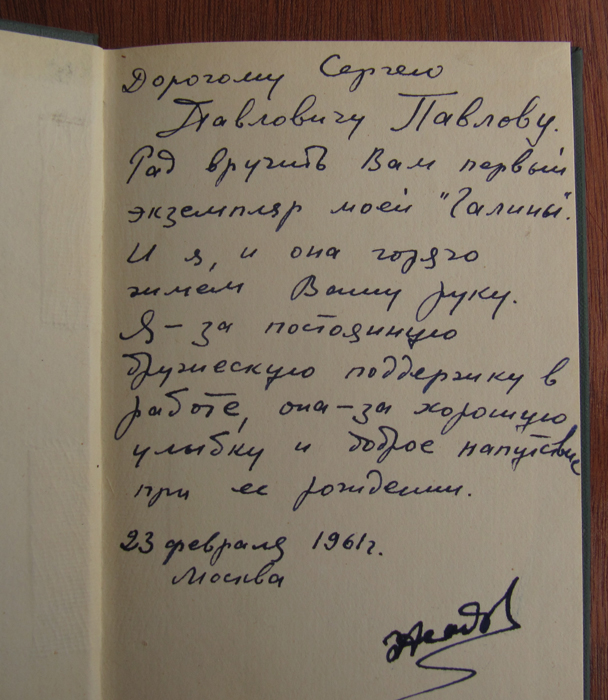 Дорогому Сергею
Павловичу Павлову.
Рад вручить Вам первый
экземпляр моей "Галины".
И я, и она горячо
жмем Вашу руку.
Я - за постоянную
дружескую поддержку в
работе, она - за хорошую
улыбку и доброе напутствие
при ее рождении.
23 февраля 1961 г.
Москва